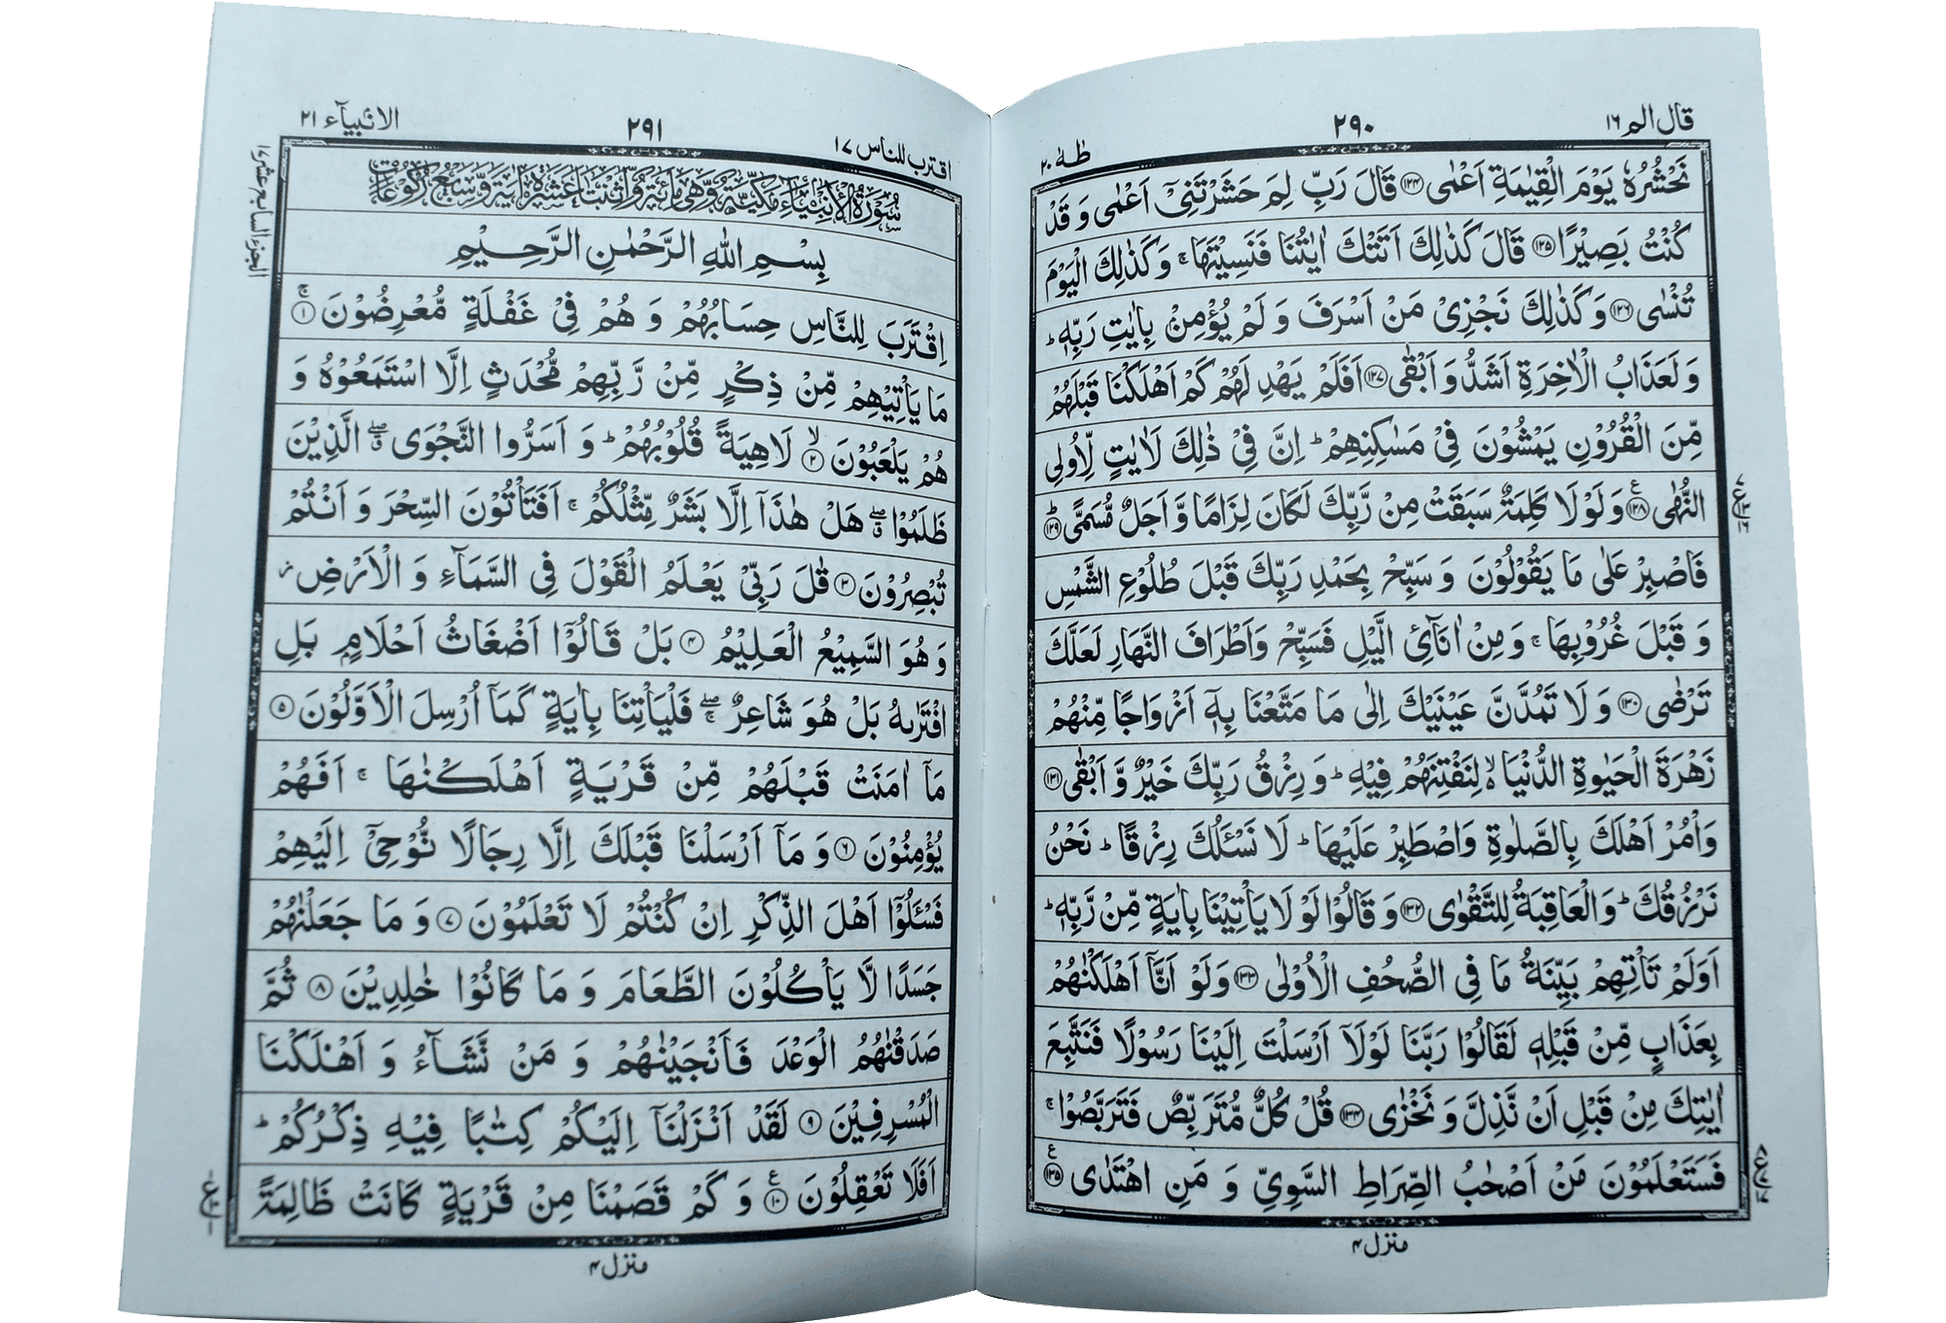 قال الم ١٦
٢٩٠
طٰهٰ ٢٠
نَحْشُرُهٗ يَوْمَ الْقِيٰمَةِ اَعْمٰى ﴿۱۲۴﴾ قَالَ رَبِّ لِمَ حَشَرْتَنِیْۤ اَعْمٰى وَ قَدْ
كُنْتُ بَصِیْرًا ﴿۱۲۵﴾ قَالَ كَذٰلِكَ اَتَتْكَ اٰیٰتُنَا فَنَسِیْتَهَا ۚ وَ كَذٰلِكَ الْیَوْمَ
تُنْسٰى ﴿۱۲۶﴾ وَ كَذٰلِكَ نَجْزِیْ مَنْ اَسْرَفَ وَ لَمْ یُؤْمِنْۢ بِاٰیٰتِ رَبِّهٖ ؕ
وَ لَعَذَابُ الْاٰخِرَةِ اَشَدُّ وَ اَبْقٰى ﴿۱۲۷﴾ اَفَلَمْ یَهْدِ لَهُمْ كَمْ اَهْلَكْنَا قَبْلَهُمْ
مِّنَ الْقُرُوْنِ یَمْشُوْنَ فِیْ مَسٰكِنِهِمْ ؕ اِنَّ فِیْ ذٰلِكَ لَاٰیٰتٍ لِّاُولِی
النُّهٰى ﴿۱۲۸﴾ وَ لَوْ لَا كَلِمَةٌ سَبَقَتْ مِنْ رَّبِّكَ لَكَانَ لِزَامًا وَّ اَجَلٌ مُّسَمًّى ؕ ﴿۱۲۹﴾
فَاصْبِرْ عَلٰى مَا یَقُوْلُوْنَ وَ سَبِّحْ بِحَمْدِ رَبِّكَ قَبْلَ طُلُوْعِ الشَّمْسِ
وَ قَبْلَ غُرُوْبِهَا ۚ وَ مِنْ اٰنَآئِ الَّیْلِ فَسَبِّحْ وَ اَطْرَافَ النَّهَارِ لَعَلَّكَ
تَرْضٰى ﴿۱۳۰﴾ وَ لَا تَمُدَّنَّ عَیْنَیْكَ اِلٰى مَا مَتَّعْنَا بِهٖۤ اَزْوَاجًا مِّنْهُمْ
زَهْرَةَ الْحَیٰوةِ الدُّنْیَا ۙ لِنَفْتِنَهُمْ فِیْهِ ؕ وَ رِزْقُ رَبِّكَ خَیْرٌ وَّ اَبْقٰى ﴿۱۳۱﴾
وَ اْمُرْ اَهْلَكَ بِالصَّلٰوةِ وَ اصْطَبِرْ عَلَیْهَا ؕ لَا نَسْـَٔلُكَ رِزْقًا ؕ نَحْنُ
نَرْزُقُكَ ؕ وَ الْعَاقِبَةُ لِلتَّقْوٰى ﴿۱۳۲﴾ وَ قَالُوْا لَوْ لَا یَاْتِیْنَا بِاٰیَةٍ مِّنْ رَّبِّهٖ ؕ
اَوَ لَمْ تَاْتِهِمْ بَیِّنَةُ مَا فِی الصُّحُفِ الْاُوْلٰى ﴿۱۳۳﴾ وَ لَوْ اَنَّاۤ اَهْلَكْنٰهُمْ
بِعَذَابٍ مِّنْ قَبْلِهٖ لَقَالُوْا رَبَّنَا لَوْ لَاۤ اَرْسَلْتَ اِلَیْنَا رَسُوْلًا فَنَتَّبِعَ
اٰیٰتِكَ مِنْ قَبْلِ اَنْ نَّذِلَّ وَ نَخْزٰى ﴿۱۳۴﴾ قُلْ كُلٌّ مُّتَرَبِّصٌ فَتَرَبَّصُوْا ۚ
فَسَتَعْلَمُوْنَ مَنْ اَصْحٰبُ الصِّرَاطِ السَّوِیِّ وَ مَنِ اهْتَدٰى ﴿۱۳۵﴾
منزل ۴
اقترب للناس ١٧
٢٩١
الانبیآء ٢١
الجزء السابع عشر ١٧
سُوْرَةُ الْاَنْبِیَآءِ مَكِّیَّةٌ وَّهِیَ مِائَةٌ وَّاثْنَتَا عَشْرَةَ اٰیَةً وَّسَبْعُ رُكُوْعَاتٍ
بِسْمِ اللّٰهِ الرَّحْمٰنِ الرَّحِیْمِ
اِقْتَرَبَ لِلنَّاسِ حِسَابُهُمْ وَ هُمْ فِیْ غَفْلَةٍ مُّعْرِضُوْنَ ۚ ﴿۱﴾
مَا یَاْتِیْهِمْ مِّنْ ذِكْرٍ مِّنْ رَّبِّهِمْ مُّحْدَثٍ اِلَّا اسْتَمَعُوْهُ وَ
هُمْ یَلْعَبُوْنَ ۙ ﴿۲﴾ لَاهِیَةً قُلُوْبُهُمْ ؕ وَ اَسَرُّوا النَّجْوَى ۖۗ الَّذِیْنَ
ظَلَمُوْا ۖۗ هَلْ هٰذَاۤ اِلَّا بَشَرٌ مِّثْلُكُمْ ۚ اَفَتَاْتُوْنَ السِّحْرَ وَ اَنْتُمْ
تُبْصِرُوْنَ ﴿۳﴾ قٰلَ رَبِّیْ یَعْلَمُ الْقَوْلَ فِی السَّمَآءِ وَ الْاَرْضِ ؗ
وَ هُوَ السَّمِیْعُ الْعَلِیْمُ ﴿۴﴾ بَلْ قَالُوْۤا اَضْغَاثُ اَحْلَامٍۭ بَلِ
افْتَرٰىهُ بَلْ هُوَ شَاعِرٌ ۖۚ فَلْیَاْتِنَا بِاٰیَةٍ كَمَاۤ اُرْسِلَ الْاَوَّلُوْنَ ﴿۵﴾
مَاۤ اٰمَنَتْ قَبْلَهُمْ مِّنْ قَرْیَةٍ اَهْلَكْنٰهَا ۚ اَفَهُمْ
یُؤْمِنُوْنَ ﴿۶﴾ وَ مَاۤ اَرْسَلْنَا قَبْلَكَ اِلَّا رِجَالًا نُّوْحِیْۤ اِلَیْهِمْ
فَسْـَٔلُوْۤا اَهْلَ الذِّكْرِ اِنْ كُنْتُمْ لَا تَعْلَمُوْنَ ﴿۷﴾ وَ مَا جَعَلْنٰهُمْ
جَسَدًا لَّا یَاْكُلُوْنَ الطَّعَامَ وَ مَا كَانُوْا خٰلِدِیْنَ ﴿۸﴾ ثُمَّ
صَدَقْنٰهُمُ الْوَعْدَ فَاَنْجَیْنٰهُمْ وَ مَنْ نَّشَآءُ وَ اَهْلَكْنَا
الْمُسْرِفِیْنَ ﴿۹﴾ لَقَدْ اَنْزَلْنَاۤ اِلَیْكُمْ كِتٰبًا فِیْهِ ذِكْرُكُمْ ؕ
اَفَلَا تَعْقِلُوْنَ ﴿۱۰﴾ وَ كَمْ قَصَمْنَا مِنْ قَرْیَةٍ كَانَتْ ظَالِمَةً
منزل ۴